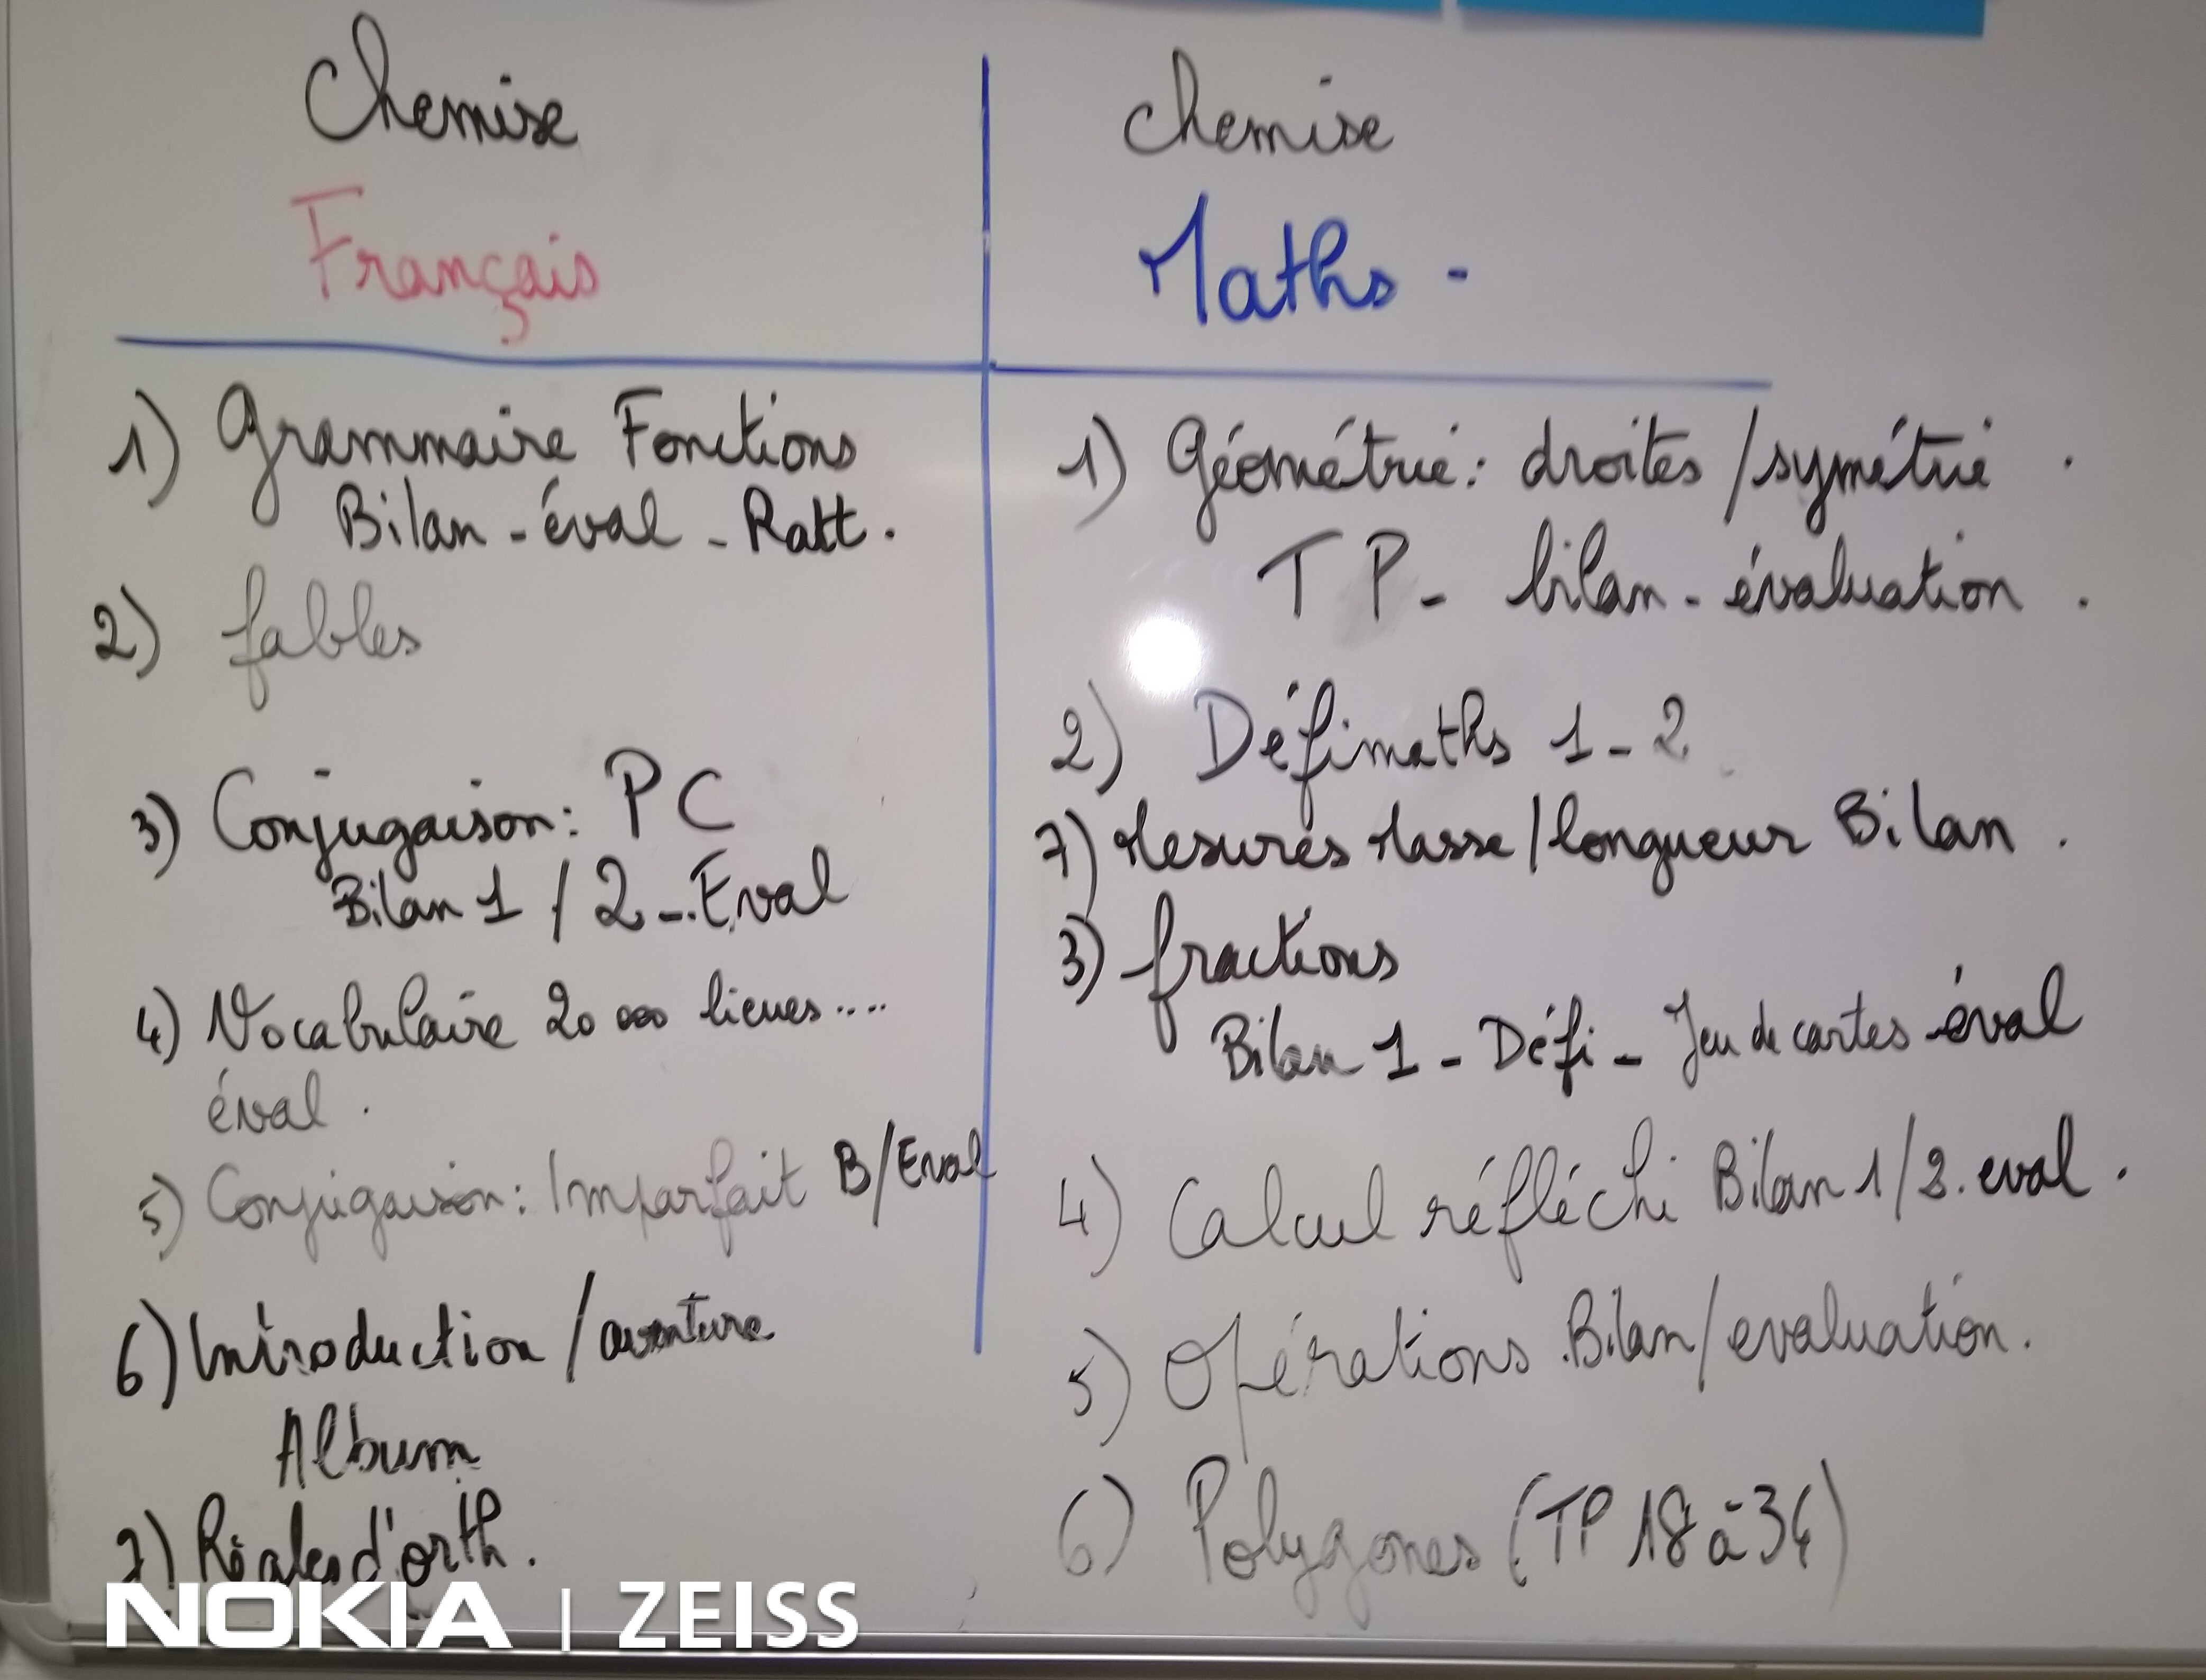 Chemise
Français
1) Grammaire Fonctions
Bilan - éval - Ratt.
2) fables
3) Conjugaison: PC
Bilan 1 / 2 - Eval
4) Vocabulaire 20 000 lieues....
éval.
5) Conjugaison: Imparfait B/Eval
6) Introduction / aventure
Album
7) Règles d'orth.
chemise
Maths -
1) Géométrie: droites / symétrie.
TP - bilan - évaluation.
2) Défimaths 1 - 2
7) Mesures Masse / longueur Bilan.
3) fractions
Bilan 1 - Défi - Jeu de cartes éval
4) Calcul réfléchi Bilan 1/2. eval.
5) Opérations Bilan / evaluation.
6) Polygones (TP 18 à 34)
NOKIA | ZEISS